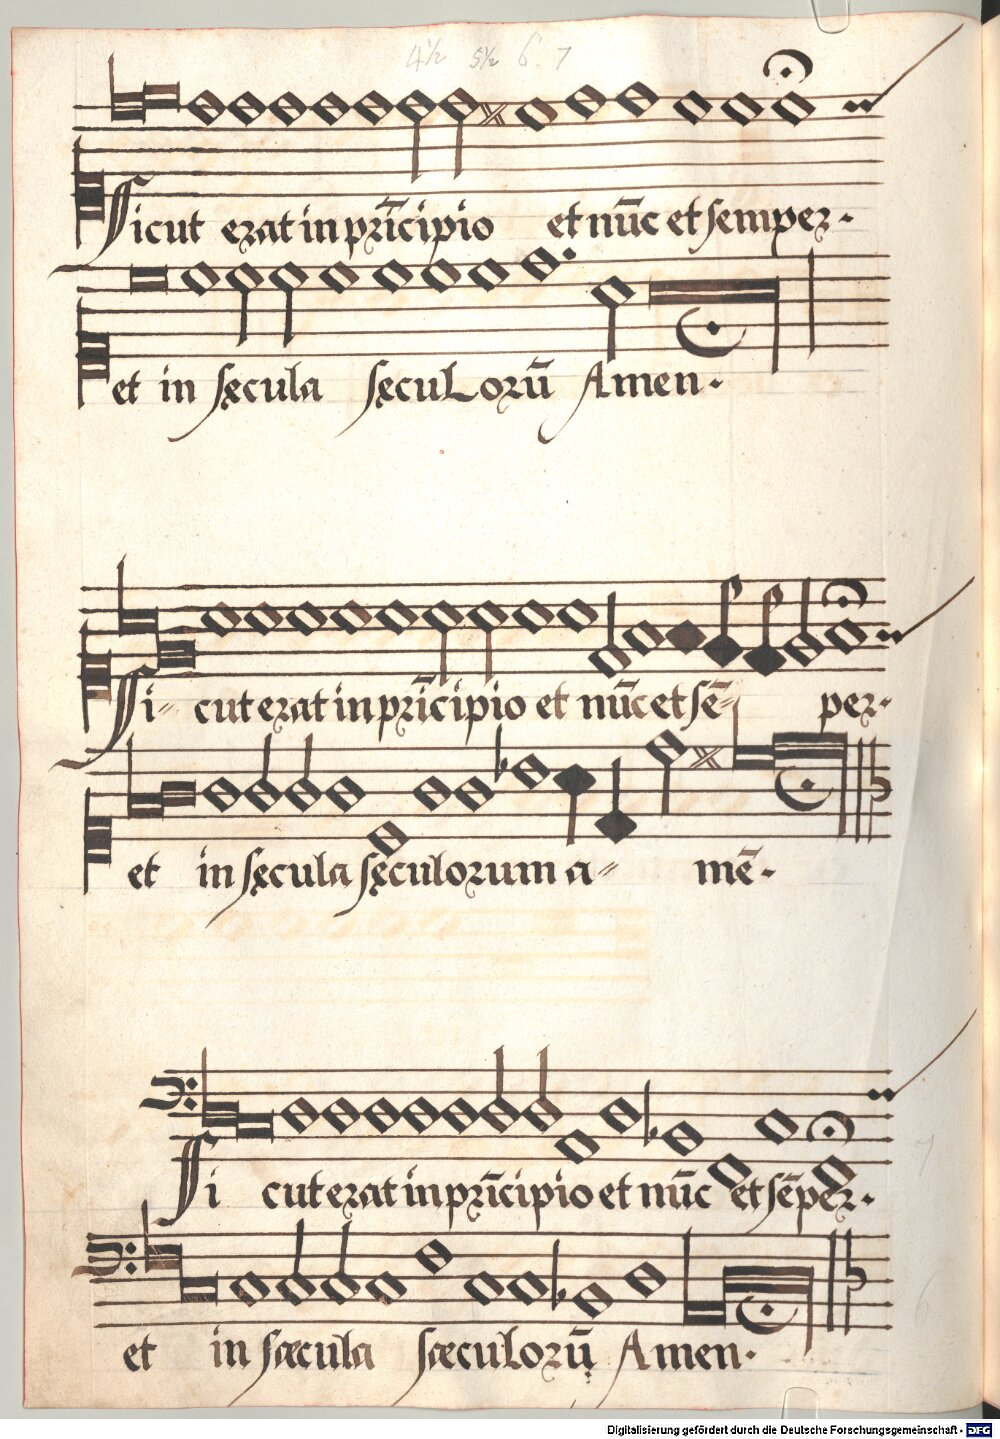 4½ 5½ 6. 7
Sicut erat in prīcipio et nūc et semper.
et in sęcula sęculorū Amen.
Si= cut erat in prīcipio et nūc et sē= per.
et in sęcula sęculorum a= mē.
Si cut erat in prīcipio et nūc et sēper.
et in sæcula sæculorū Amen.
Digitalisierung gefördert durch die Deutsche Forschungsgemeinschaft - DFG